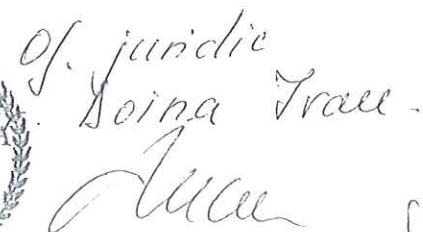 Of. juridic
Doina Iran.